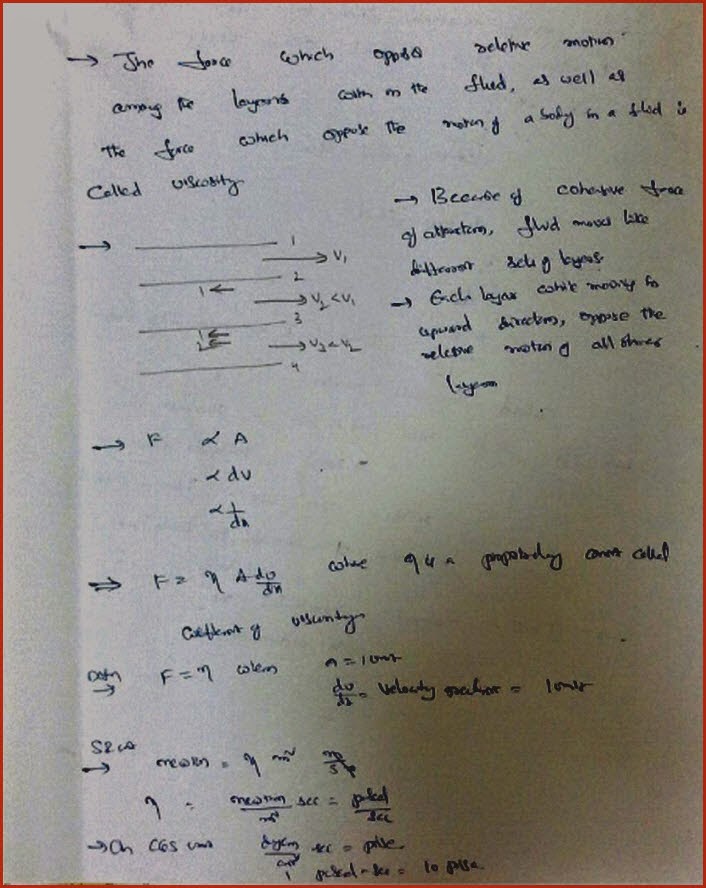 → The force which oppose relative motion
among the layers with in the fluid, as well as
the force which oppose the motion of a body in a fluid is
Called viscosity
→ 1
→ V₁
2
1 ←
→ V₂ < V₁
3
1 ←
2 ←
→ V₃ < V₂
4
→ Because of cohesive force
of attraction, fluid moves like
different sets of layers
→ Each layer while moving in
upward direction, oppose the
relative motion of all
layers
→ F ∝ A
∝ dv
∝ 1/dx
⇒ F = η A dv/dx where η is a called
Coefficient of viscosity
→ F = η when A = 1 unit
dv/dx = velocity gradient = 1 unit
→ newton = η m²
η = newton/m² sec =
→ In CGS unit dyne/cm² sec = poise
1 = 10 poise